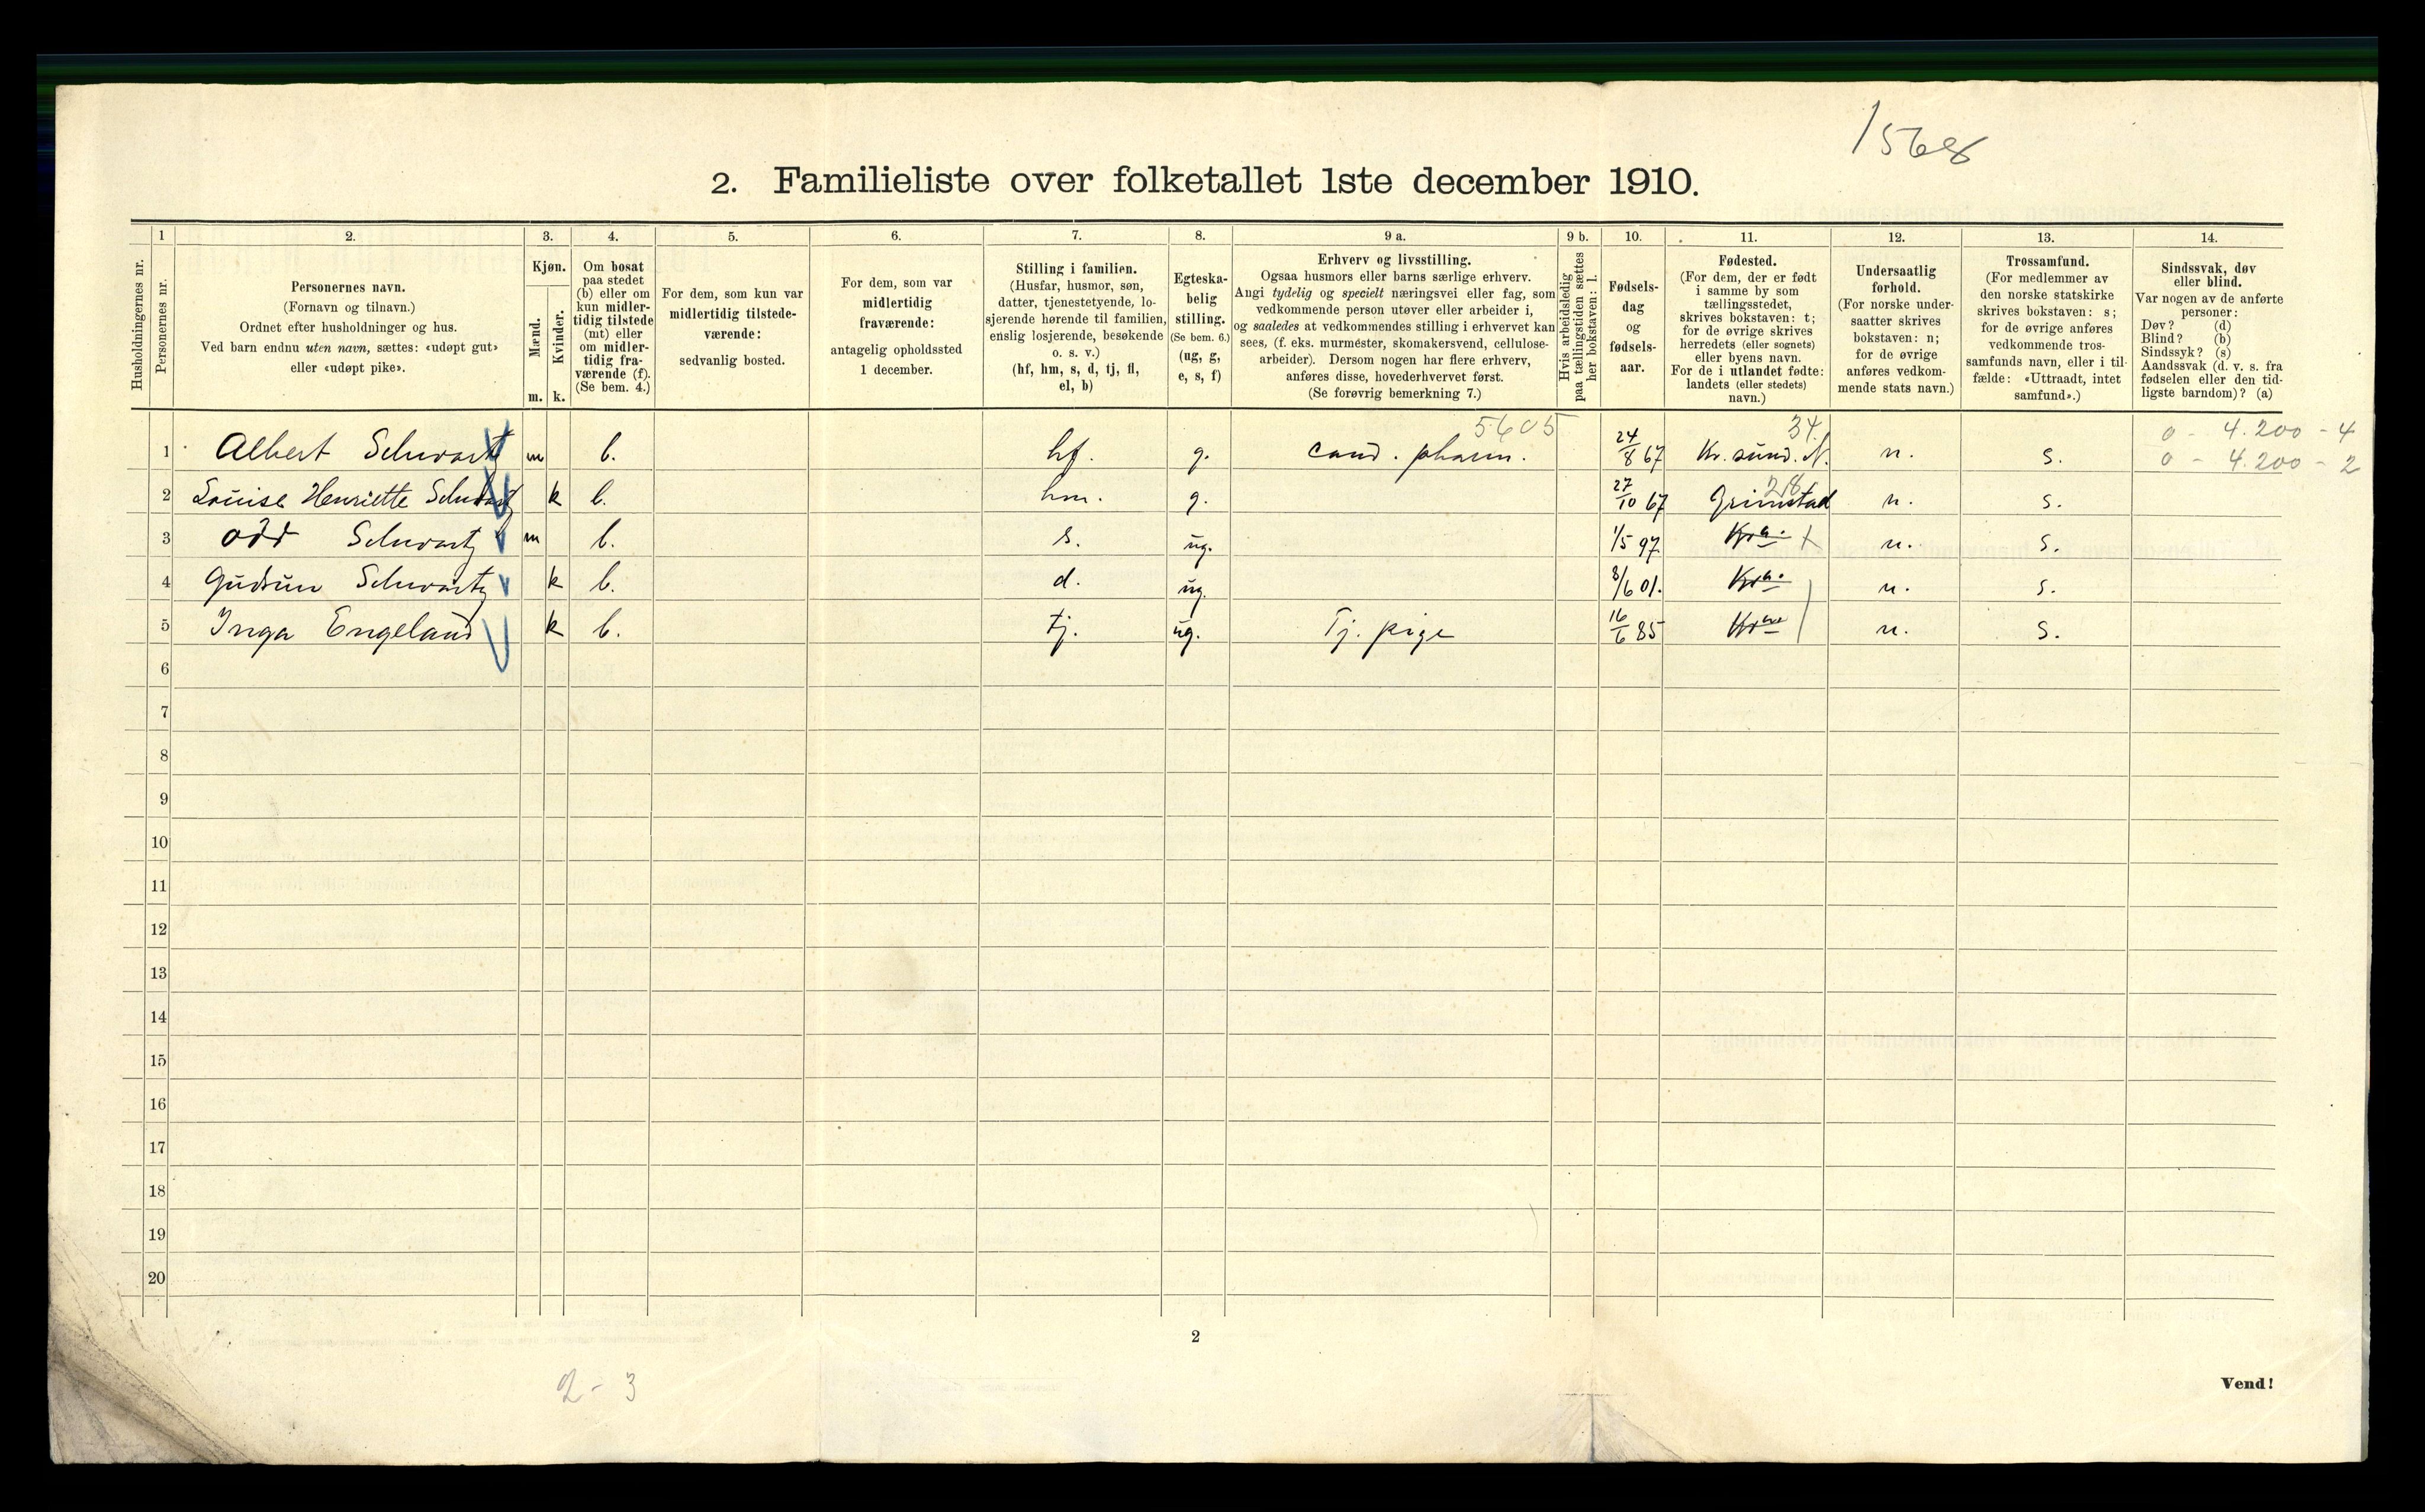 1568
2. Familieliste over folketallet 1ste december 1910.
Husholdningernes nr.
1 Personernes nr.
2. Personernes navn.
(Fornavn og tilnavn.)
Ordnet efter husholdninger og hus.
Ved barn endnu uten navn, sættes: «udøpt gut»
eller «udøpt pike».
3. Kjøn.
Mænd. m.
Kvinder. k.
4. Om bosat
paa stedet
(b) eller om
kun midler-
tidig tilstede
(mt) eller
om midler-
tidig fra-
værende (f).
(Se bem. 4.)
5. For dem, som kun var
midlertidig tilstede-
værende:
sedvanlig bosted.
6. For dem, som var
midlertidig
fraværende:
antagelig opholdssted
1 december.
7. Stilling i familien.
(Husfar, husmor, søn,
datter, tjenestetyende, lo-
sjerende hørende til familien,
enslig losjerende, besøkende
o. s. v.)
(hf, hm, s, d, tj, fl,
el, b)
8. Egteska-
belig
stilling.
(Se bem. 6.)
(ug, g,
e, s, f)
9 a. Erhverv og livsstilling.
Ogsaa husmors eller barns særlige erhverv.
Angi tydelig og specielt næringsvei eller fag, som
vedkommende person utøver eller arbeider i,
og saaledes at vedkommendes stilling i erhvervet kan
sees, (f. eks. murmester, skomakersvend, cellulose-
arbeider). Dersom nogen har flere erhverv,
anføres disse, hovederhvervet først.
(Se forøvrig bemerkning 7.)
9 b. Hvis arbeidsledig
paa tællingstiden sættes
her bokstaven: l.
10. Fødsels-
dag
og
fødsels-
aar.
11. Fødested.
(For dem, der er født
i samme by som
tællingsstedet,
skrives bokstaven: t;
for de øvrige skrives
herredets (eller sognets)
eller byens navn.
For de i utlandet fødte:
landets (eller stedets)
navn.)
12. Undersaatlig
forhold.
(For norske under-
saatter skrives
bokstaven: n;
for de øvrige
anføres vedkom-
mende stats navn.)
13. Trossamfund.
(For medlemmer av
den norske statskirke
skrives bokstaven: s;
for de øvrige anføres
vedkommende tros-
samfunds navn, eller i til-
fælde: «Uttraadt, intet
samfund».)
14. Sindssvak, døv
eller blind.
Var nogen av de anførte
personer:
Døv? (d)
Blind? (b)
Sindssyk? (s)
Aandssvak (d. v. s. fra
fødselen eller den tid-
ligste barndom)? (a)
5605 34. 0 - 4.200 - 4
1 Albert Schwartz m b. hf. g. cand. pharm. 24/8 67 Kr.sund. N. n. s. 0 - 4.200 - 2
218
2 Louise Henriette Schwartz k b. hm. g. 27/10 67 Grimstad n. s.
3 Odd Schwartz m b. s. ug. 1/5 97 Kra. t n. s.
4 Gudrun Schwartz k b. d. ug. 3/6 01. Kra. n. s.
5 Inga Engeland k b. tj. ug. Tj. pige 16/6 85 Kra n. s.
6
7
8
9
10
11
12
13
14
15
16
17
18
19
20
2
2 - 3
Vend!